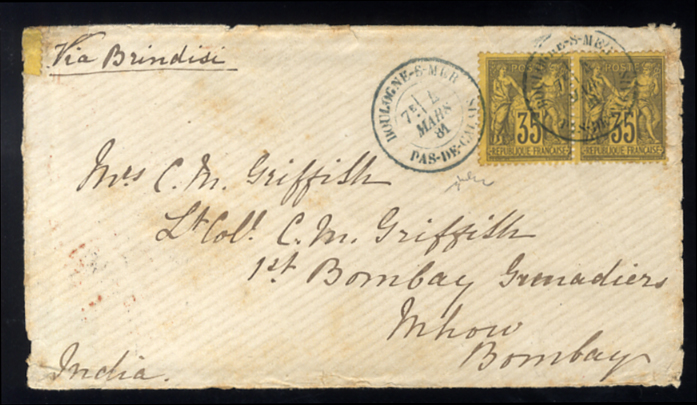 Via Brindisi
BOULOGNE-S-MER
7E
MARS
81
PAS-DE-CALAIS
POSTES
35
REPUBLIQUE FRANÇAISE
POSTES
35
REPUBLIQUE FRANÇAISE
Mrs C. M. Griffith
Lt Coll. C. M. Griffith
1st Bombay Grenadiers
Mhow
Bombay
India.